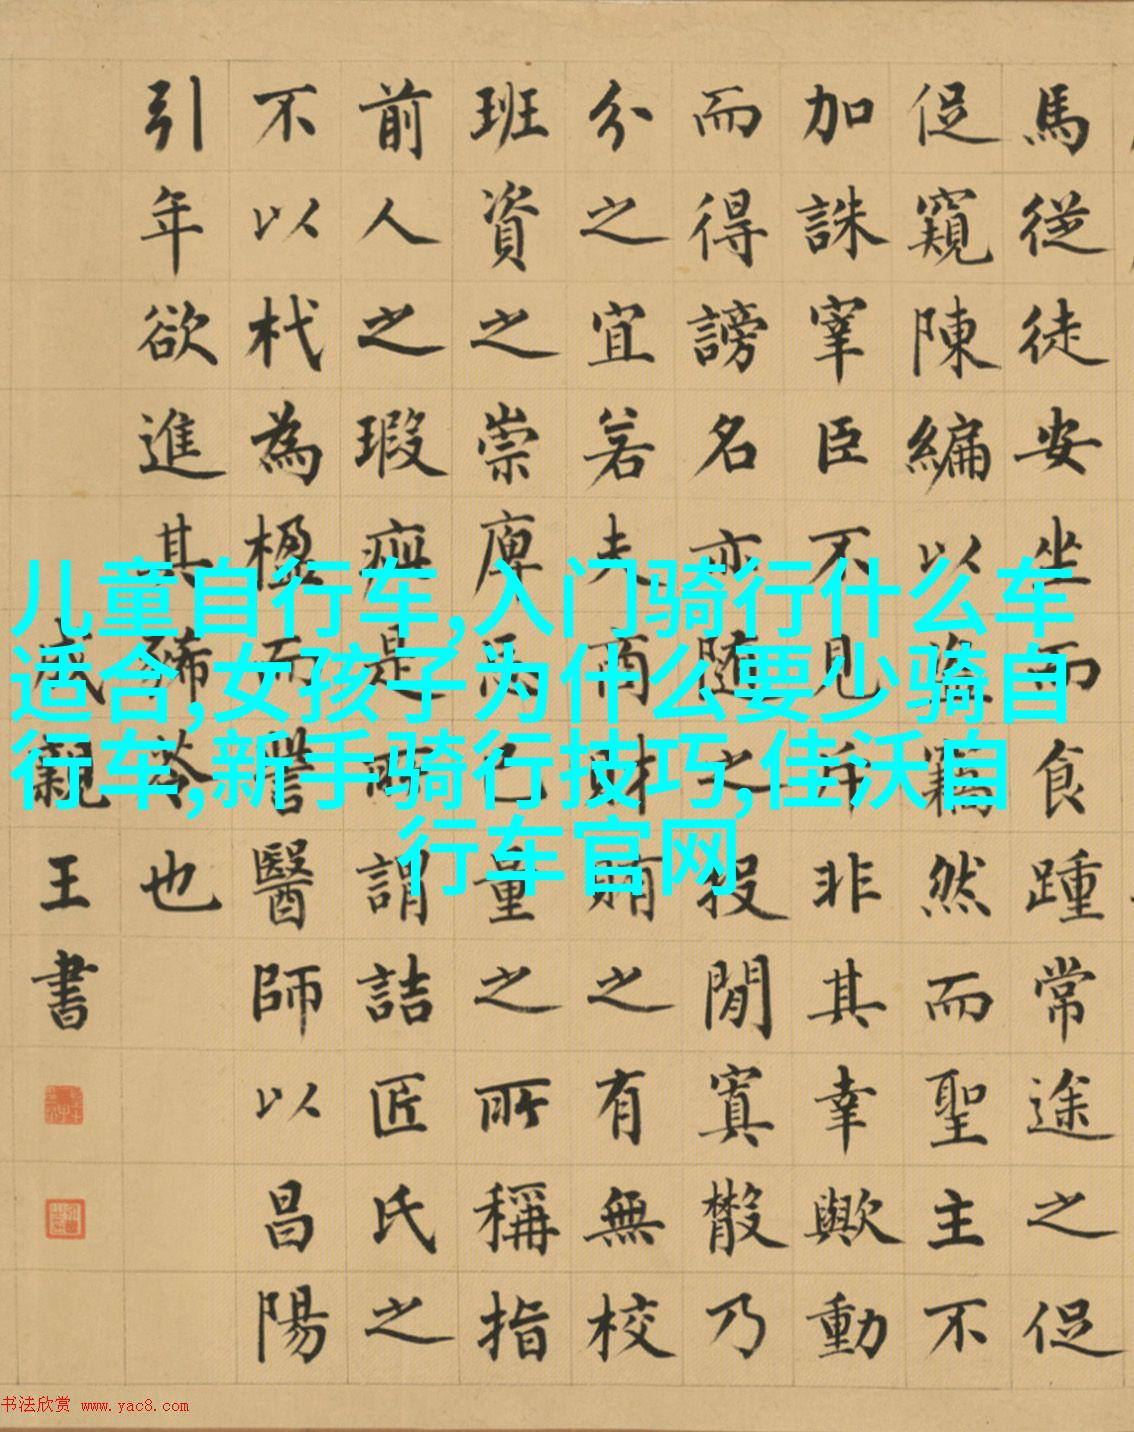 馬從徒安坐而食踵常途之促
促窺陳編以盜竊然而聖主不
加誅宰臣不見斥非其幸歟動
而得謗名亦随之投閒寘散乃
分之宜若夫商財賄之有無校
班資之崇庳忘己量之所稱指
前人之瑕疵是所謂詰匠氏之
不以杙為楹而訾醫師以昌陽
引年欲進其豨苓也
成親王書
儿童自行车,入门骑行什么车
适合,女孩子为什么要少骑自
行车,新手骑行技巧,佳沃自
行车官网
书法欣赏 www.yac8.com